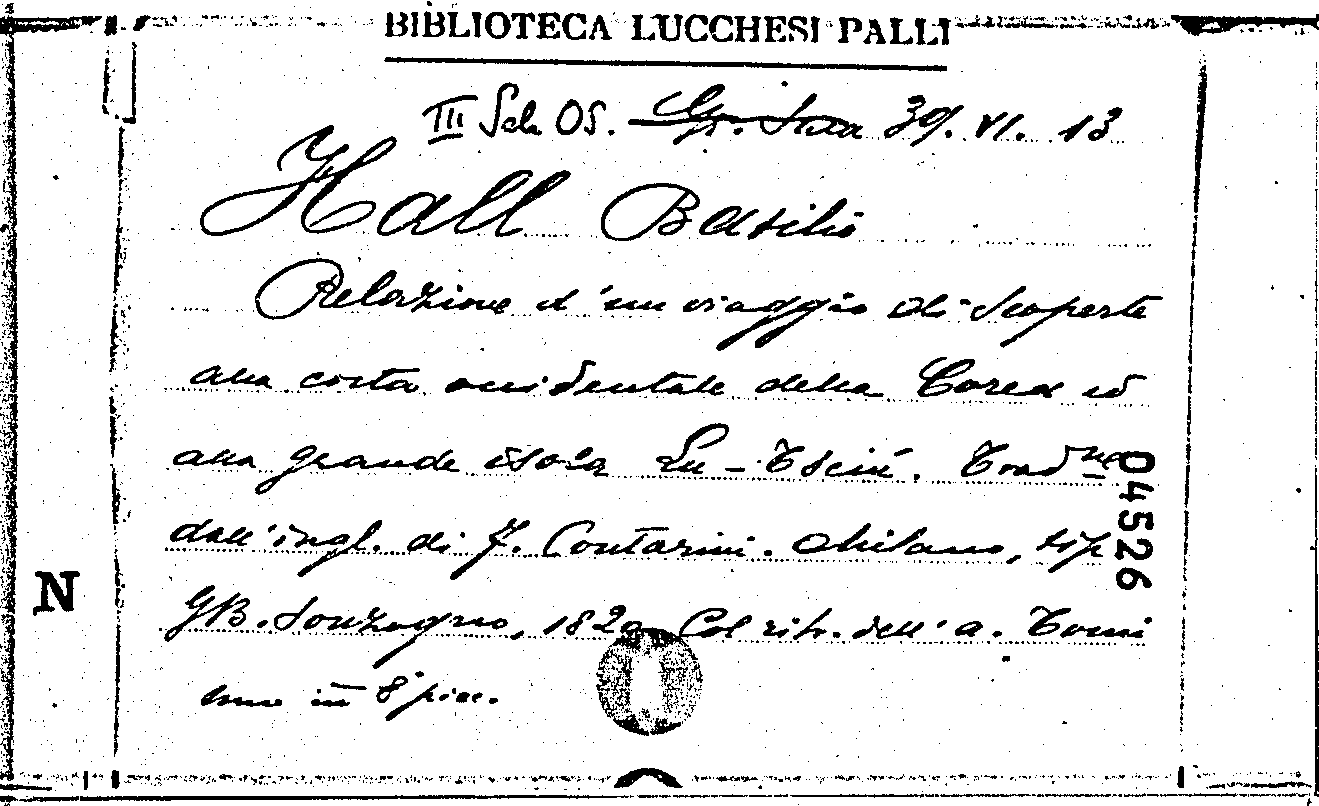 BIBLIOTECA LUCCHESI PALLI
III Sch. OS. 39. VI. 13
Hall Basilio
Relazione d'un viaggio di scoperte
alla costa occidentale della Corea ed
alla grande isola Lu-Tsciù. Trad.ne
dall'ingl. di F. Contarini. Milano, tip
GB. Sonzogno, 1820 Col ritr. dell'a. Tomi
in 8° picc.
04526
N